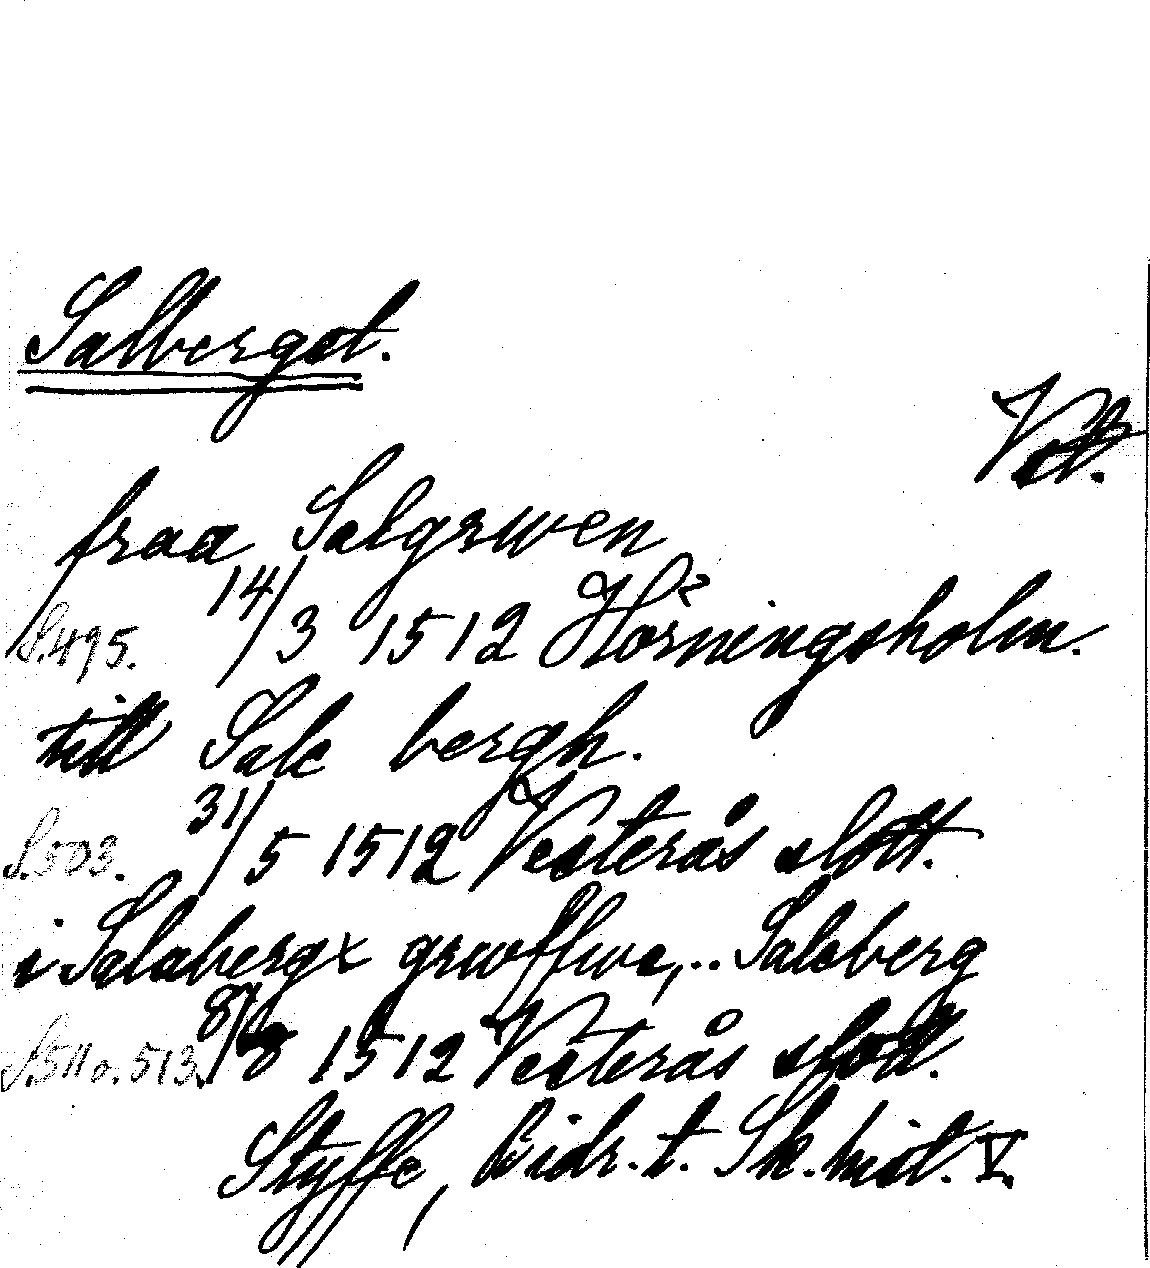 Salbergst.
Vstt.
fraa Salgrwen
S. 495. 14/3 1512 Hörningsholm.
till Sale bergh.
S. 503. 31/5 1512 Vesterås slott.
i Salabergx grwffwe, .. Saleberg
S. 511 o. 513. 8/8 1512 Vesterås slott.
Styffe, Bidr. t. Sk. hist. V.